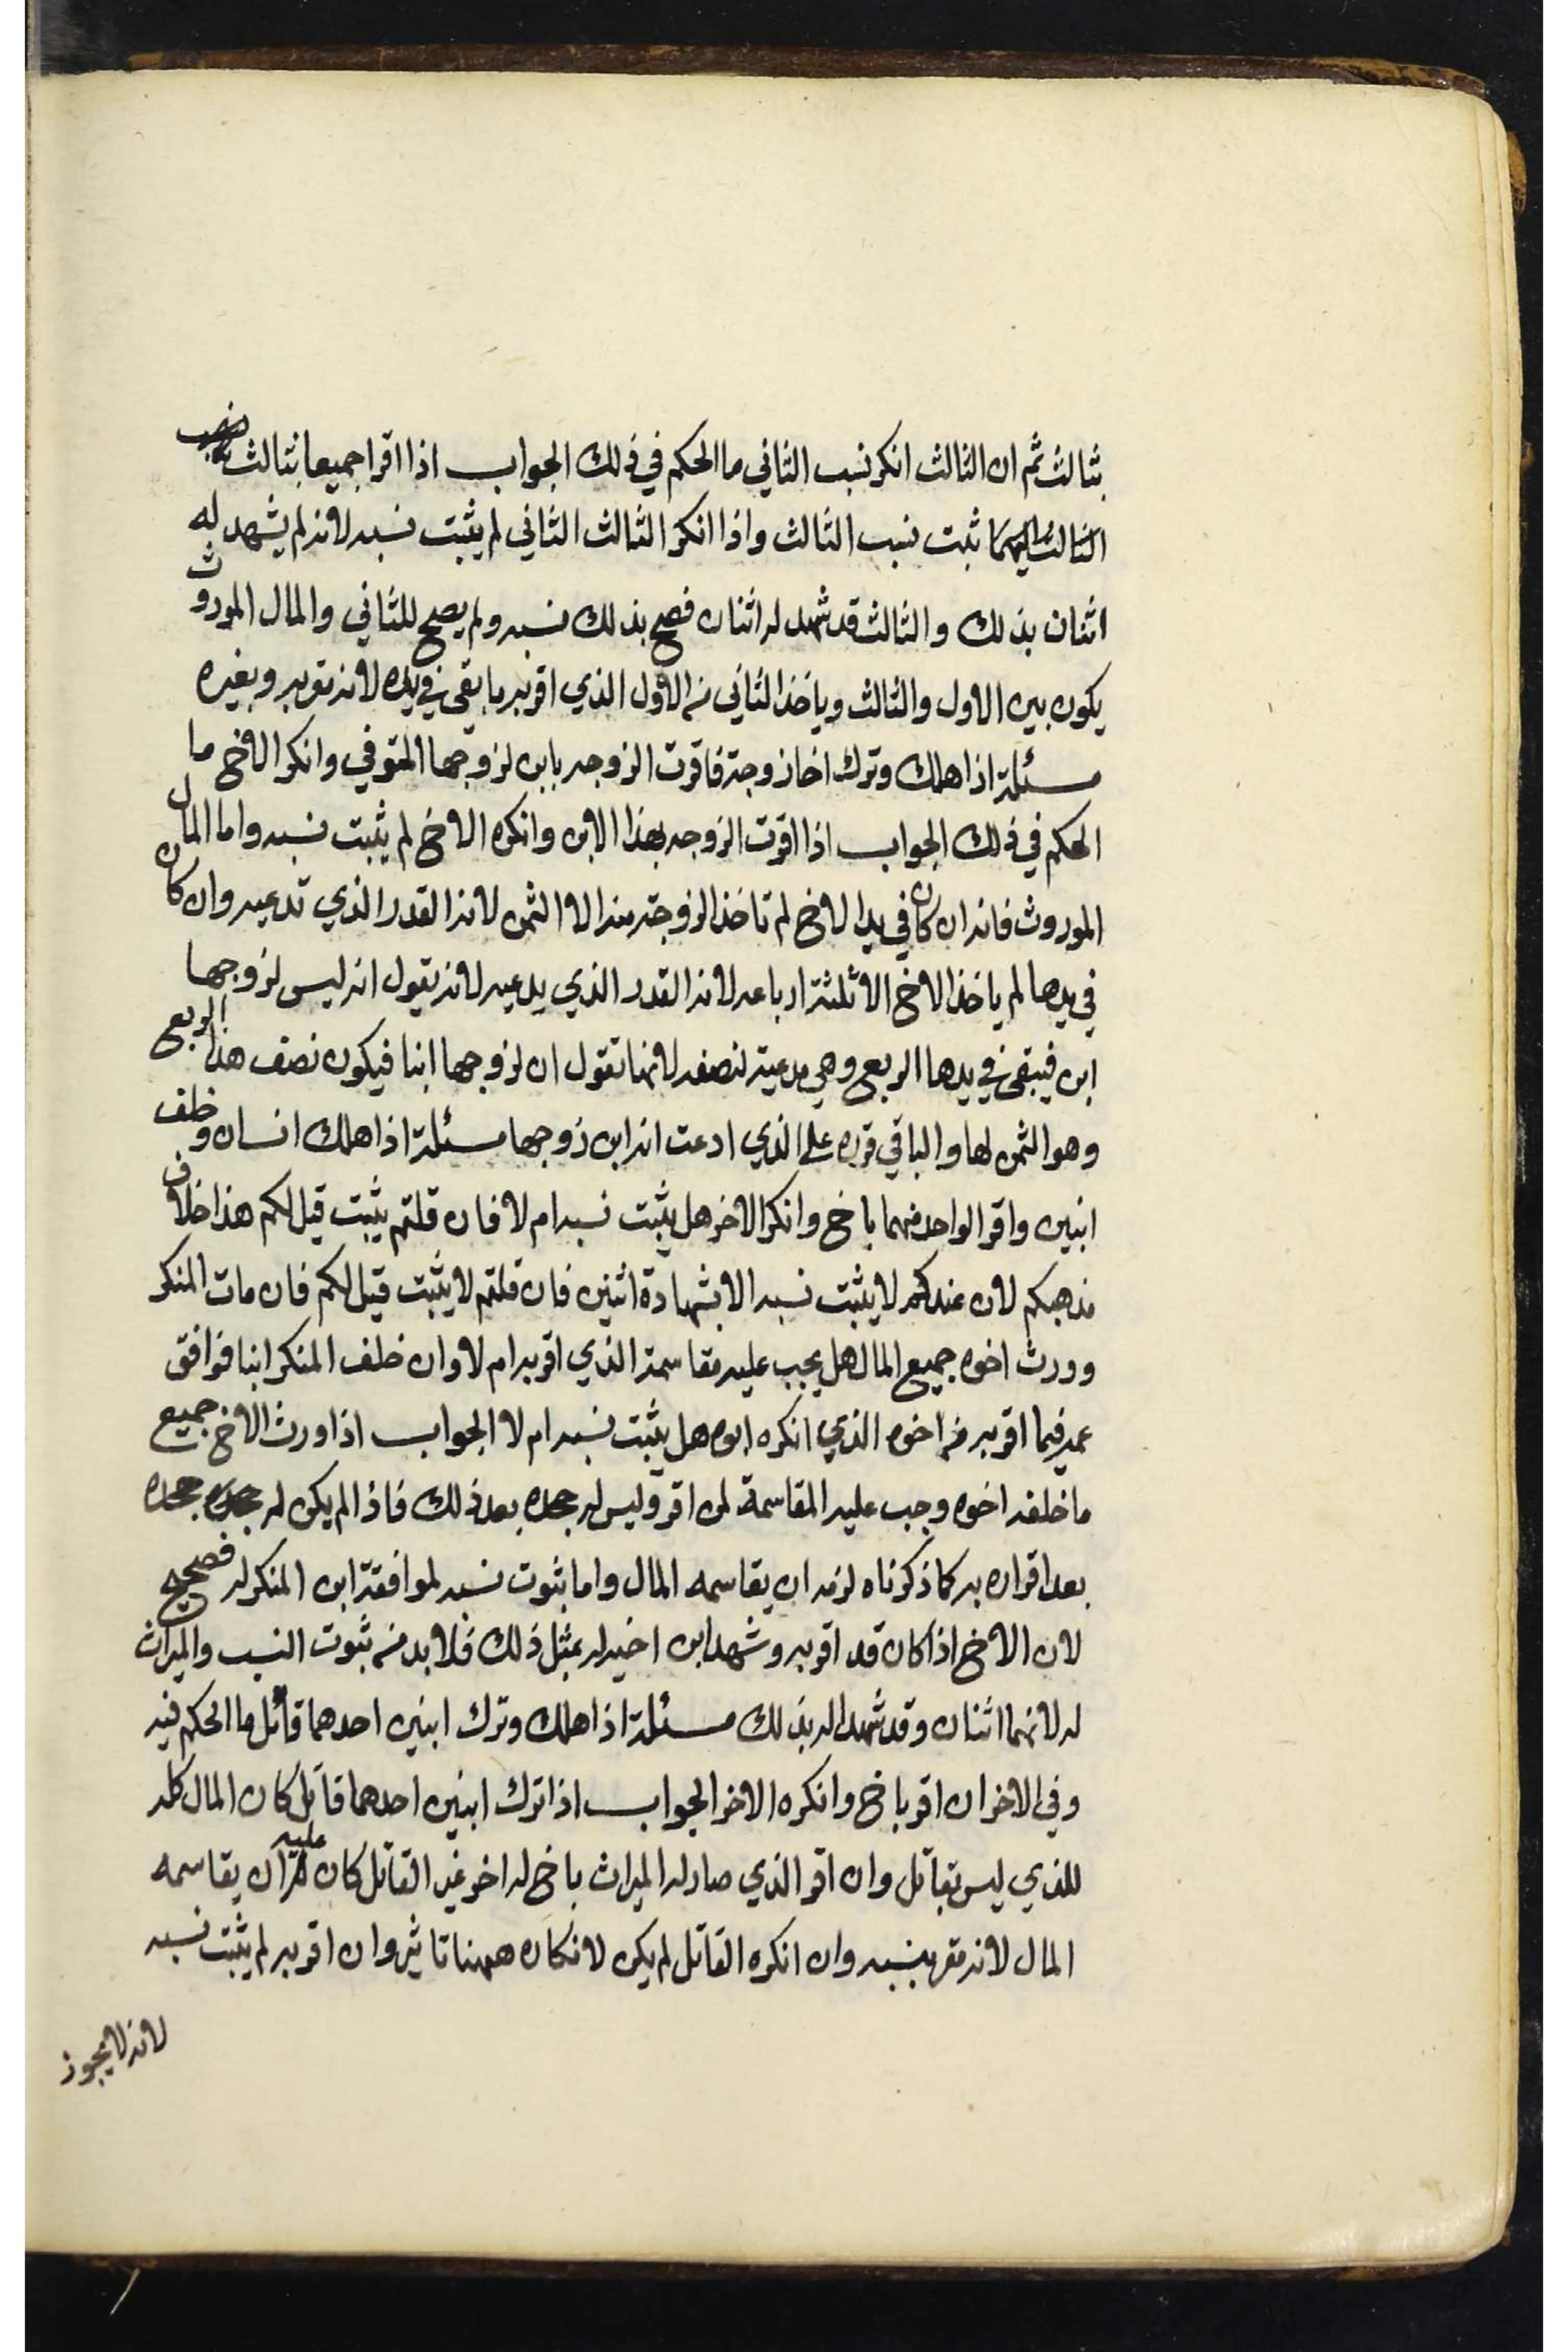 بثالث ثم ان الثالث انكر نسب الثاني ما الحكم في ذلك الجواب اذا اقرا جميعا بثالث
الثالث اليهما ثبت نسب الثالث واذا انكر الثالث الثاني لم يثبت نسبه لانه لم يشهد له
اثنان بذلك والثالث قد شهد له اثنان فصح بذلك نسبه ولم يصح للثاني والمال الموروث
يكون بين الاول والثالث وياخذ الثاني من الاول الذي اقر به ما بقى في يده لانه تقر به وبغيره
مسئلة اذا هلك وترك اخا زوجة فاقرت الزوجه بابن لزوجها المتوفي وانكر الاخ ما
الحكم في ذلك الجواب اذا اقرت الزوجه بهذا الابن وانكره الاخ لم يثبت نسبه واما المال
الموروث فانه ان كان في يد الاخ لم تاخذ الزوجة منه الا الثمن لانه القدر الذي تدعيه وان كان
في يدها لم ياخذ الاخ الا ثلثة ارباعه لانه القدر الذي يدعيه لانه يقول انه ليس لزوجها
ابن فيبقى في يدها الربع وهي مدعية لنصفه لانها تقول ان لزوجها ابنا فيكون نصف هذا الربع
وهو الثمن لها والباقي ترده على الذي ادعت انه ابن زوجها مسئلة اذا هلك انسان وخلف
ابنين واقر الواحد منهما باخ وانكر الاخر هل يثبت نسبه ام لا فان قلتم يثبت قيل لكم هذا خلاف
مذهبكم لان عندكم لا يثبت نسبه الا بشهادة اثنين فان قلتم لا يثبت قيل لكم فان مات المنكر
وورث اخوه جميع المال هل يجب عليه مقاسمة الذي اقر به ام لا وان خلف المنكر ابنا فوافق
عمه فيما اقر به من اخوه الذي انكره ابوه هل يثبت نسبه ام لا الجواب اذا ورث الاخ جميع
ما خلفه اخوه وجب عليه المقاسمة لمن اقر وليس له جحده بعد ذلك فاذا لم يكن له جحده
بعد اقراره به كما ذكرناه لزمه ان يقاسمه المال واما ثبوت نسبه لموافقة ابن المنكر له فصحيح
لان الاخ اذا كان قد اقر به وشهد ابن اخيه له بمثل ذلك فلا بد من ثبوت النسب والميراث
له لانهما اثنان وقد شهدا له بذلك مسئلة اذا هلك وترك ابنين احدهما قاتل ما الحكم فيه
وفي الاخر ان اقر باخ وانكره الاخر الجواب اذا ترك ابنين احدهما قاتل كان المال كله
للذي ليس بقاتل وان اقر الذي صار له الميراث باخ له اخر غير القاتل كان عليه ان يقاسمه
المال لانه مقر بنسبه وان انكره القاتل لم يكن لانكاره ههنا تاثير وان اقر به لم يثبت نسبه
لانه لا يجوز